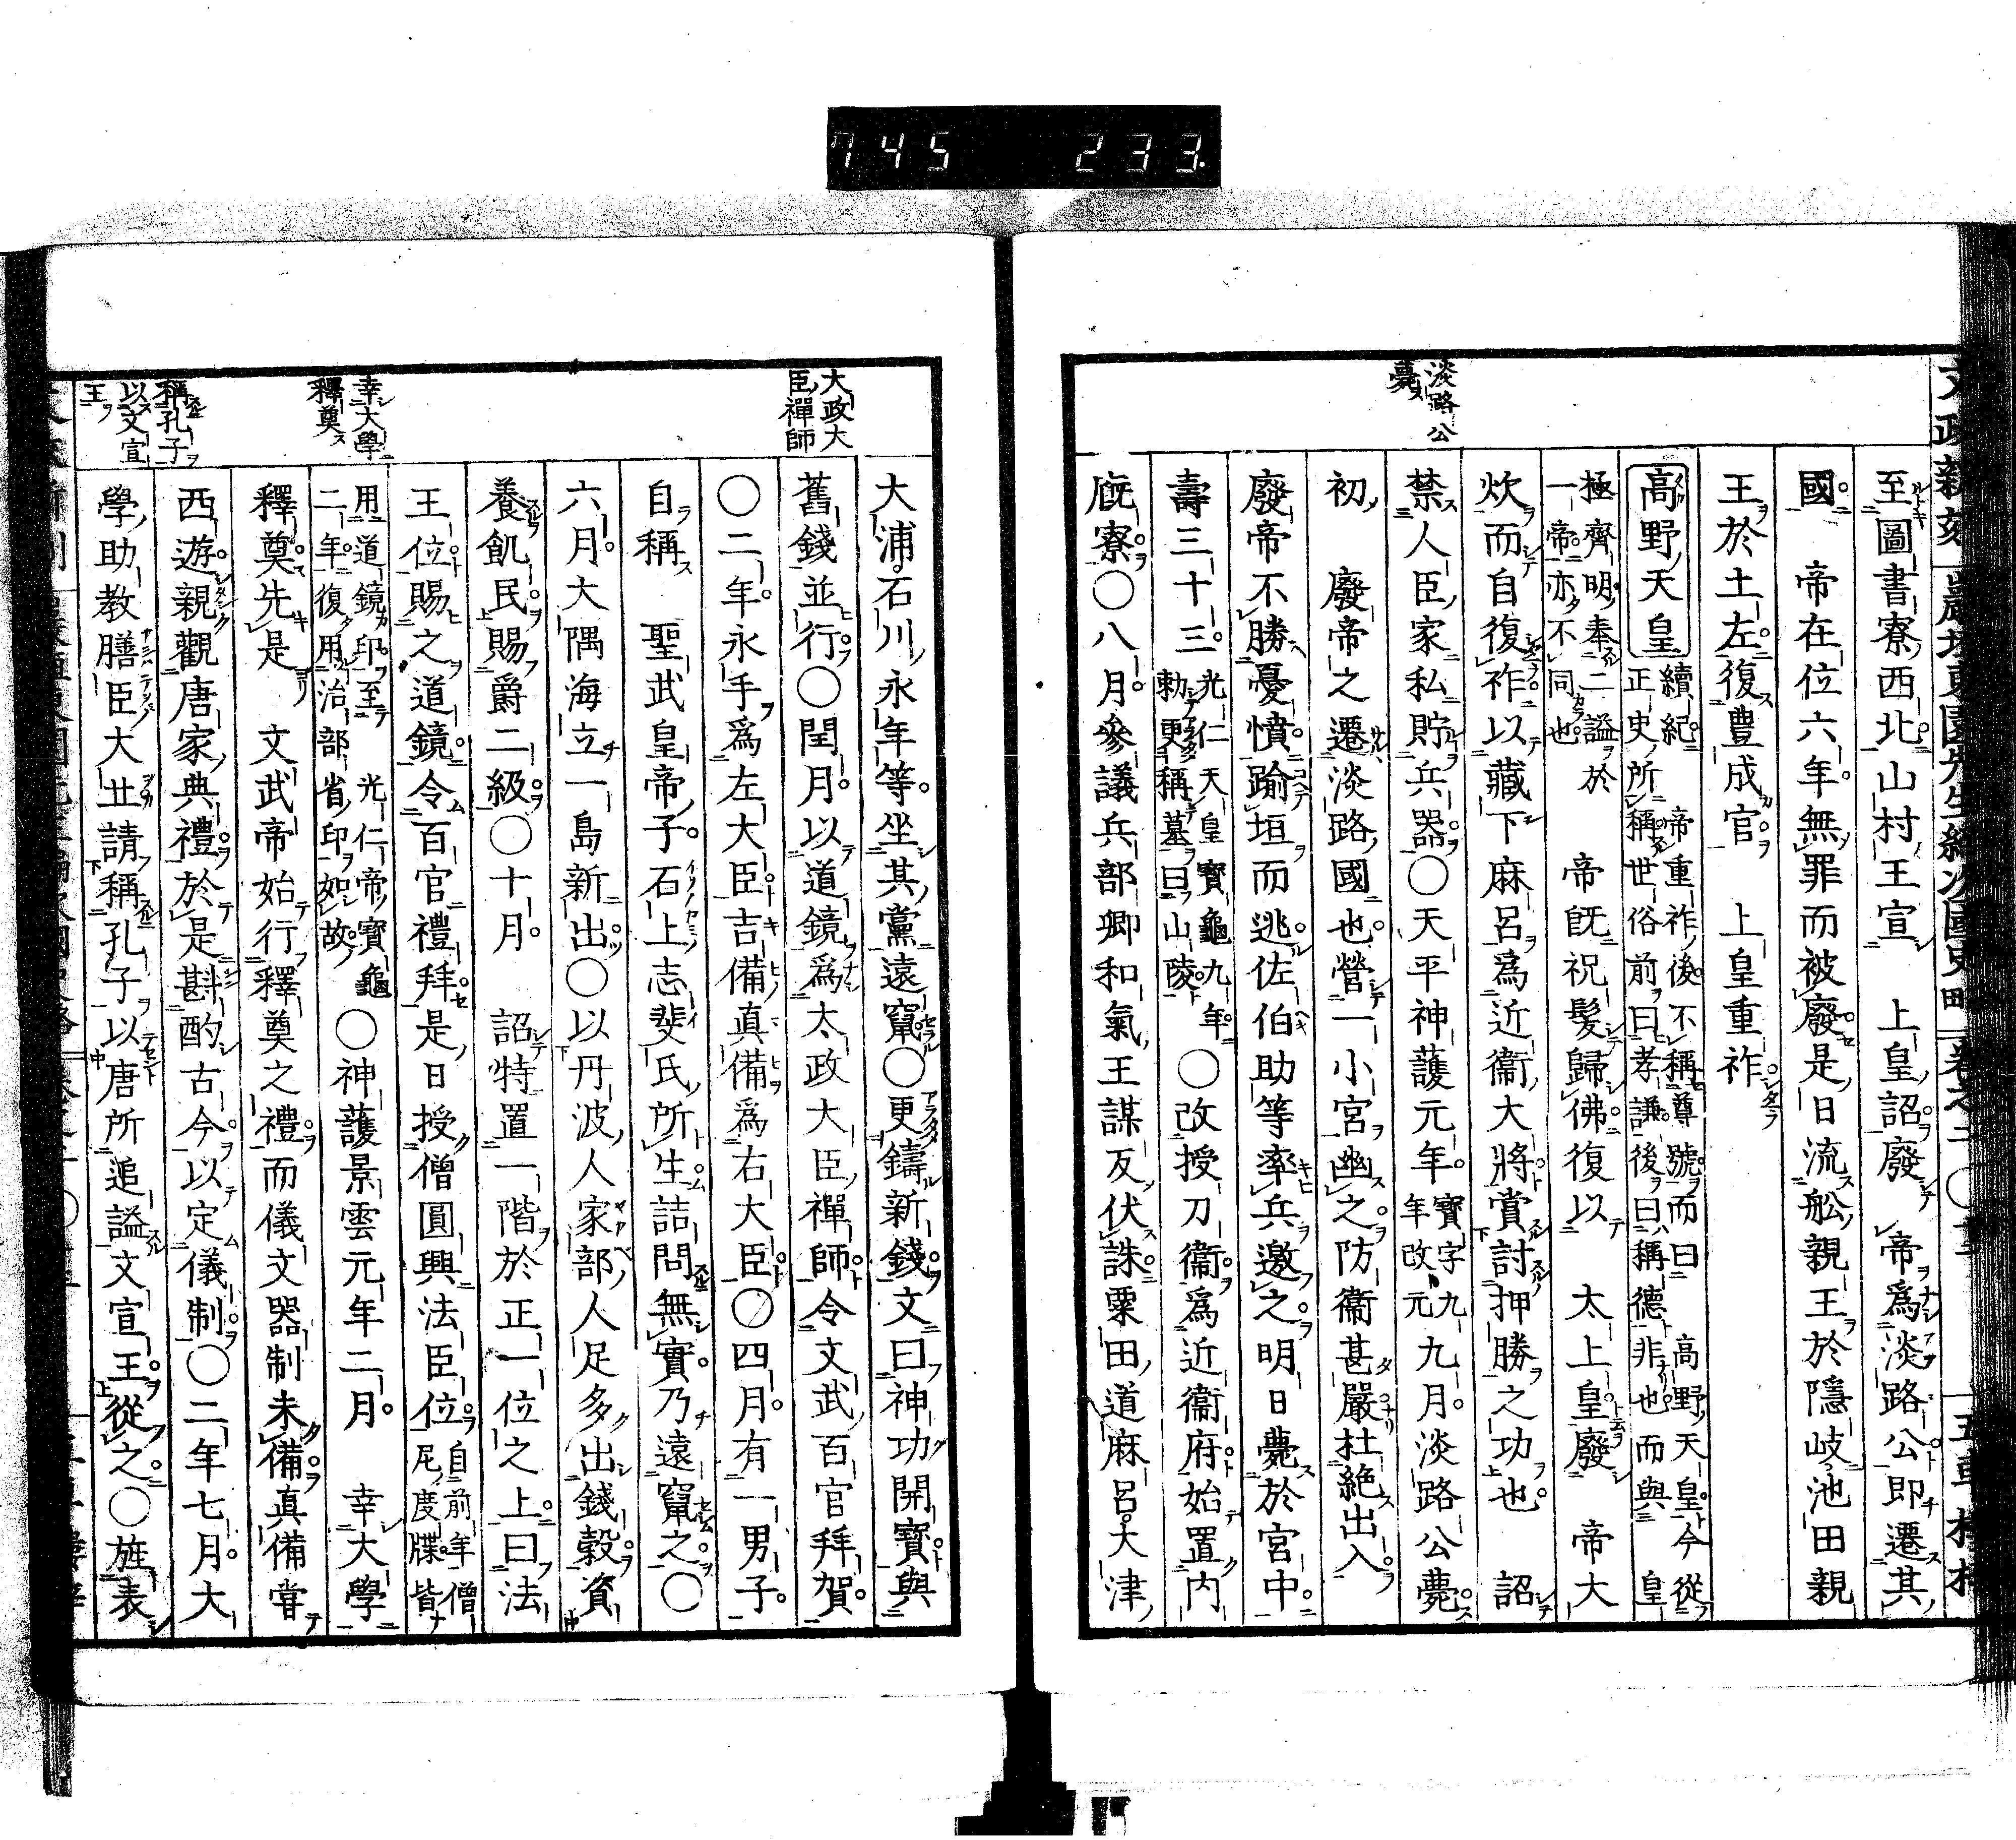 745 233
淡路公
薨
至圖書寮西北山村王宣　上皇詔廢　帝爲淡路公即遷其
國　帝在位六年無罪而被廢是日流舩親王於隱岐池田親
王於土左復豊成官　上皇重祚
高野天皇
續紀　帝重祚後不稱尊號而曰　高野天皇今從
正史所稱世俗前曰孝謙後曰稱德非也而與　皇
極齊明奉二謚於
一帝亦不同也
帝旣祝髮歸佛復以　太上皇廢　帝大
炊而自復祚以藏下麻呂爲近衞大將賞討押勝之功也　詔
禁人臣家私貯兵器〇天平神護元年
寶字九
年改元
九月淡路公薨
初　廢帝之遷淡路國也營一小宮幽之防衞甚嚴杜絶出入
廢帝不勝憂憤踰垣而逃佐伯助等率兵邀之明日薨於宮中
壽三十三
光仁天皇寶龜九年
勅更稱墓曰山陵
〇改授刀衞爲近衞府始置内
廐寮〇八月參議兵部卿和氣王謀反伏誅粟田道麻呂大津
大政大
臣禪師
幸大學
釋奠
稱孔子
以文宣
王
大浦石川永年等坐其黨遠竄〇更鑄新錢文曰神功開寶與
舊錢並行〇閏月以道鏡爲太政大臣禪師令文武百官拜賀
〇二年永手爲左大臣吉備真備爲右大臣〇四月有一男子
自稱　聖武皇帝子石上志斐氏所生詰問無實乃遠竄之〇
六月大隅海立一島新出〇以丹波人家部人足多出錢穀資
養飢民賜爵二級〇十月　詔特置一階於正一位之上曰法
王位賜之道鏡令百官禮拜是日授僧圓興法臣位
自前年僧
尼度牒皆
用道鏡印至　光仁帝寶龜
二年復用治部省印如故
〇神護景雲元年二月　幸大學
釋奠先是　文武帝始行釋奠之禮而儀文器制未備真備甞
西遊親觀唐家典禮於是斟酌古今以定儀制〇二年七月大
學助教膳臣大丘請稱孔子以唐所追謚文宣王從之〇旌表